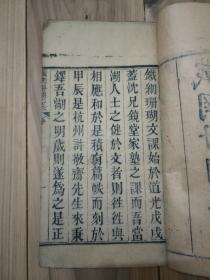 鐵網珊瑚文課始於道光戊戌
蓋沈兄鏡堂家塾之課而吾當
湖人士之健於文者則往往與
相應和於是積篇帙而刻於
甲辰是杭州許齋先生來秉
鐸吾湖之明歲則遂爲之是正